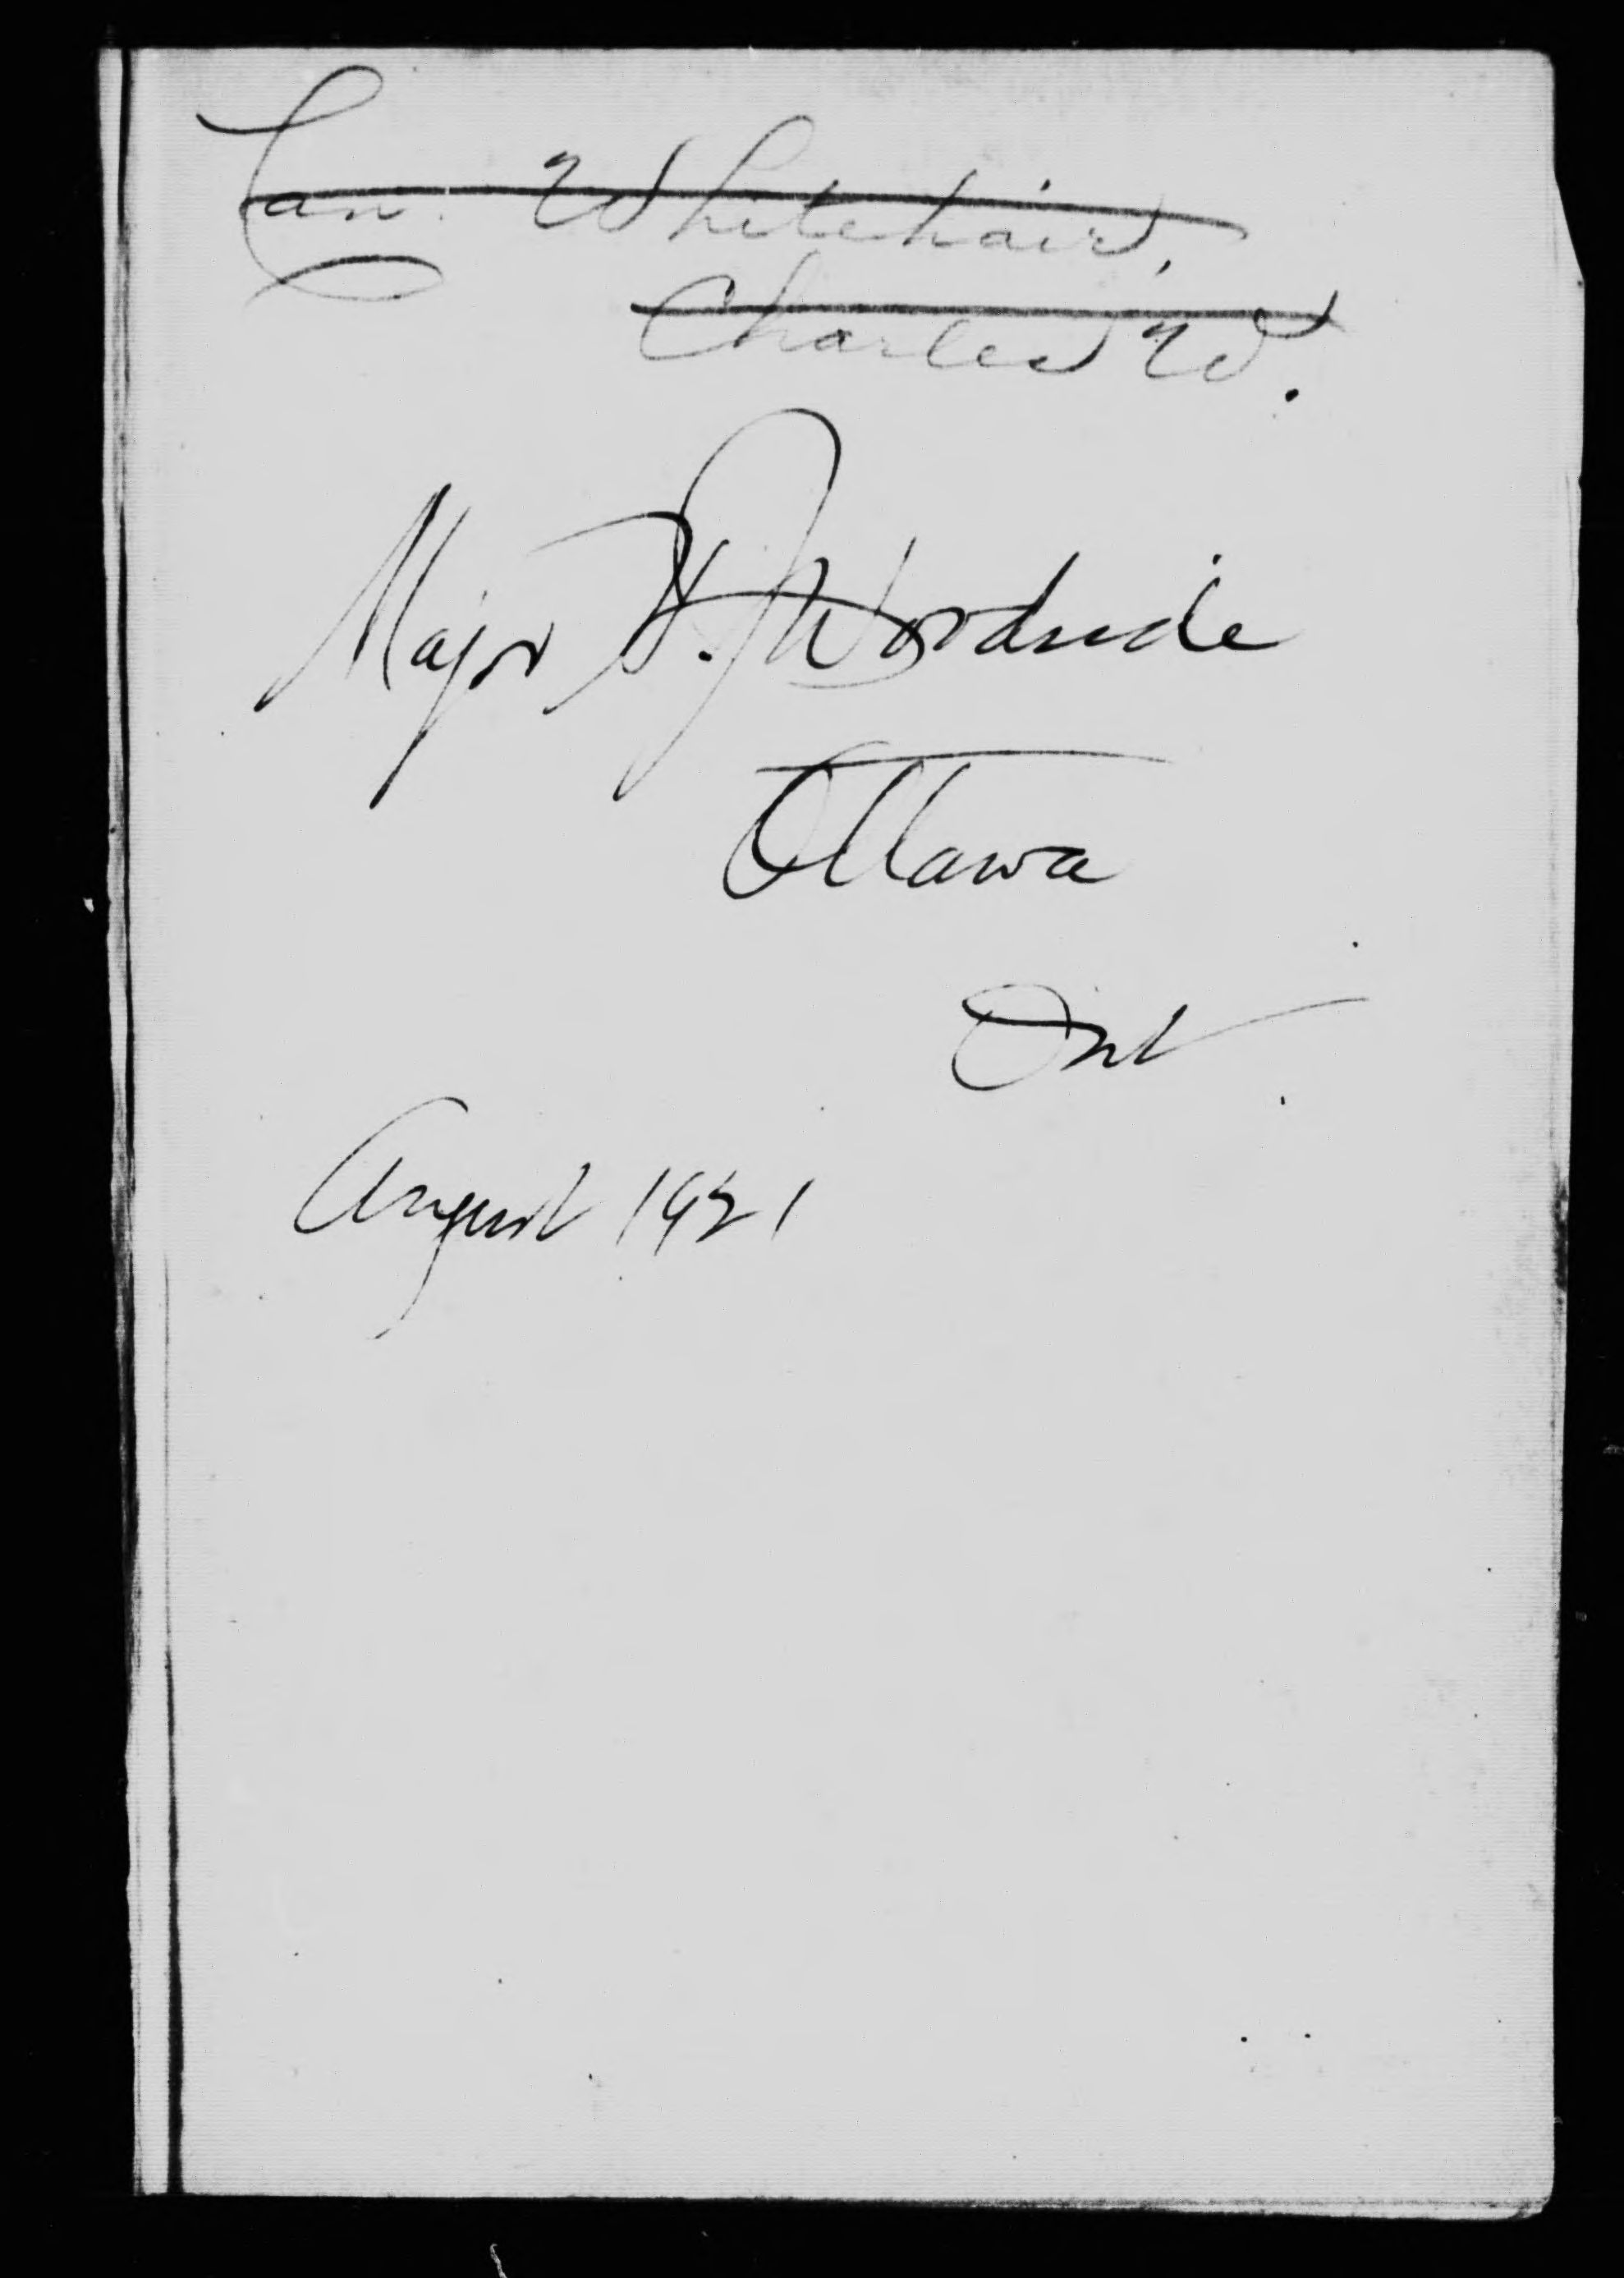 Can. Whitehair,
Charles W.
Major H. J. Woodside
Ottawa
Ont
August 1921